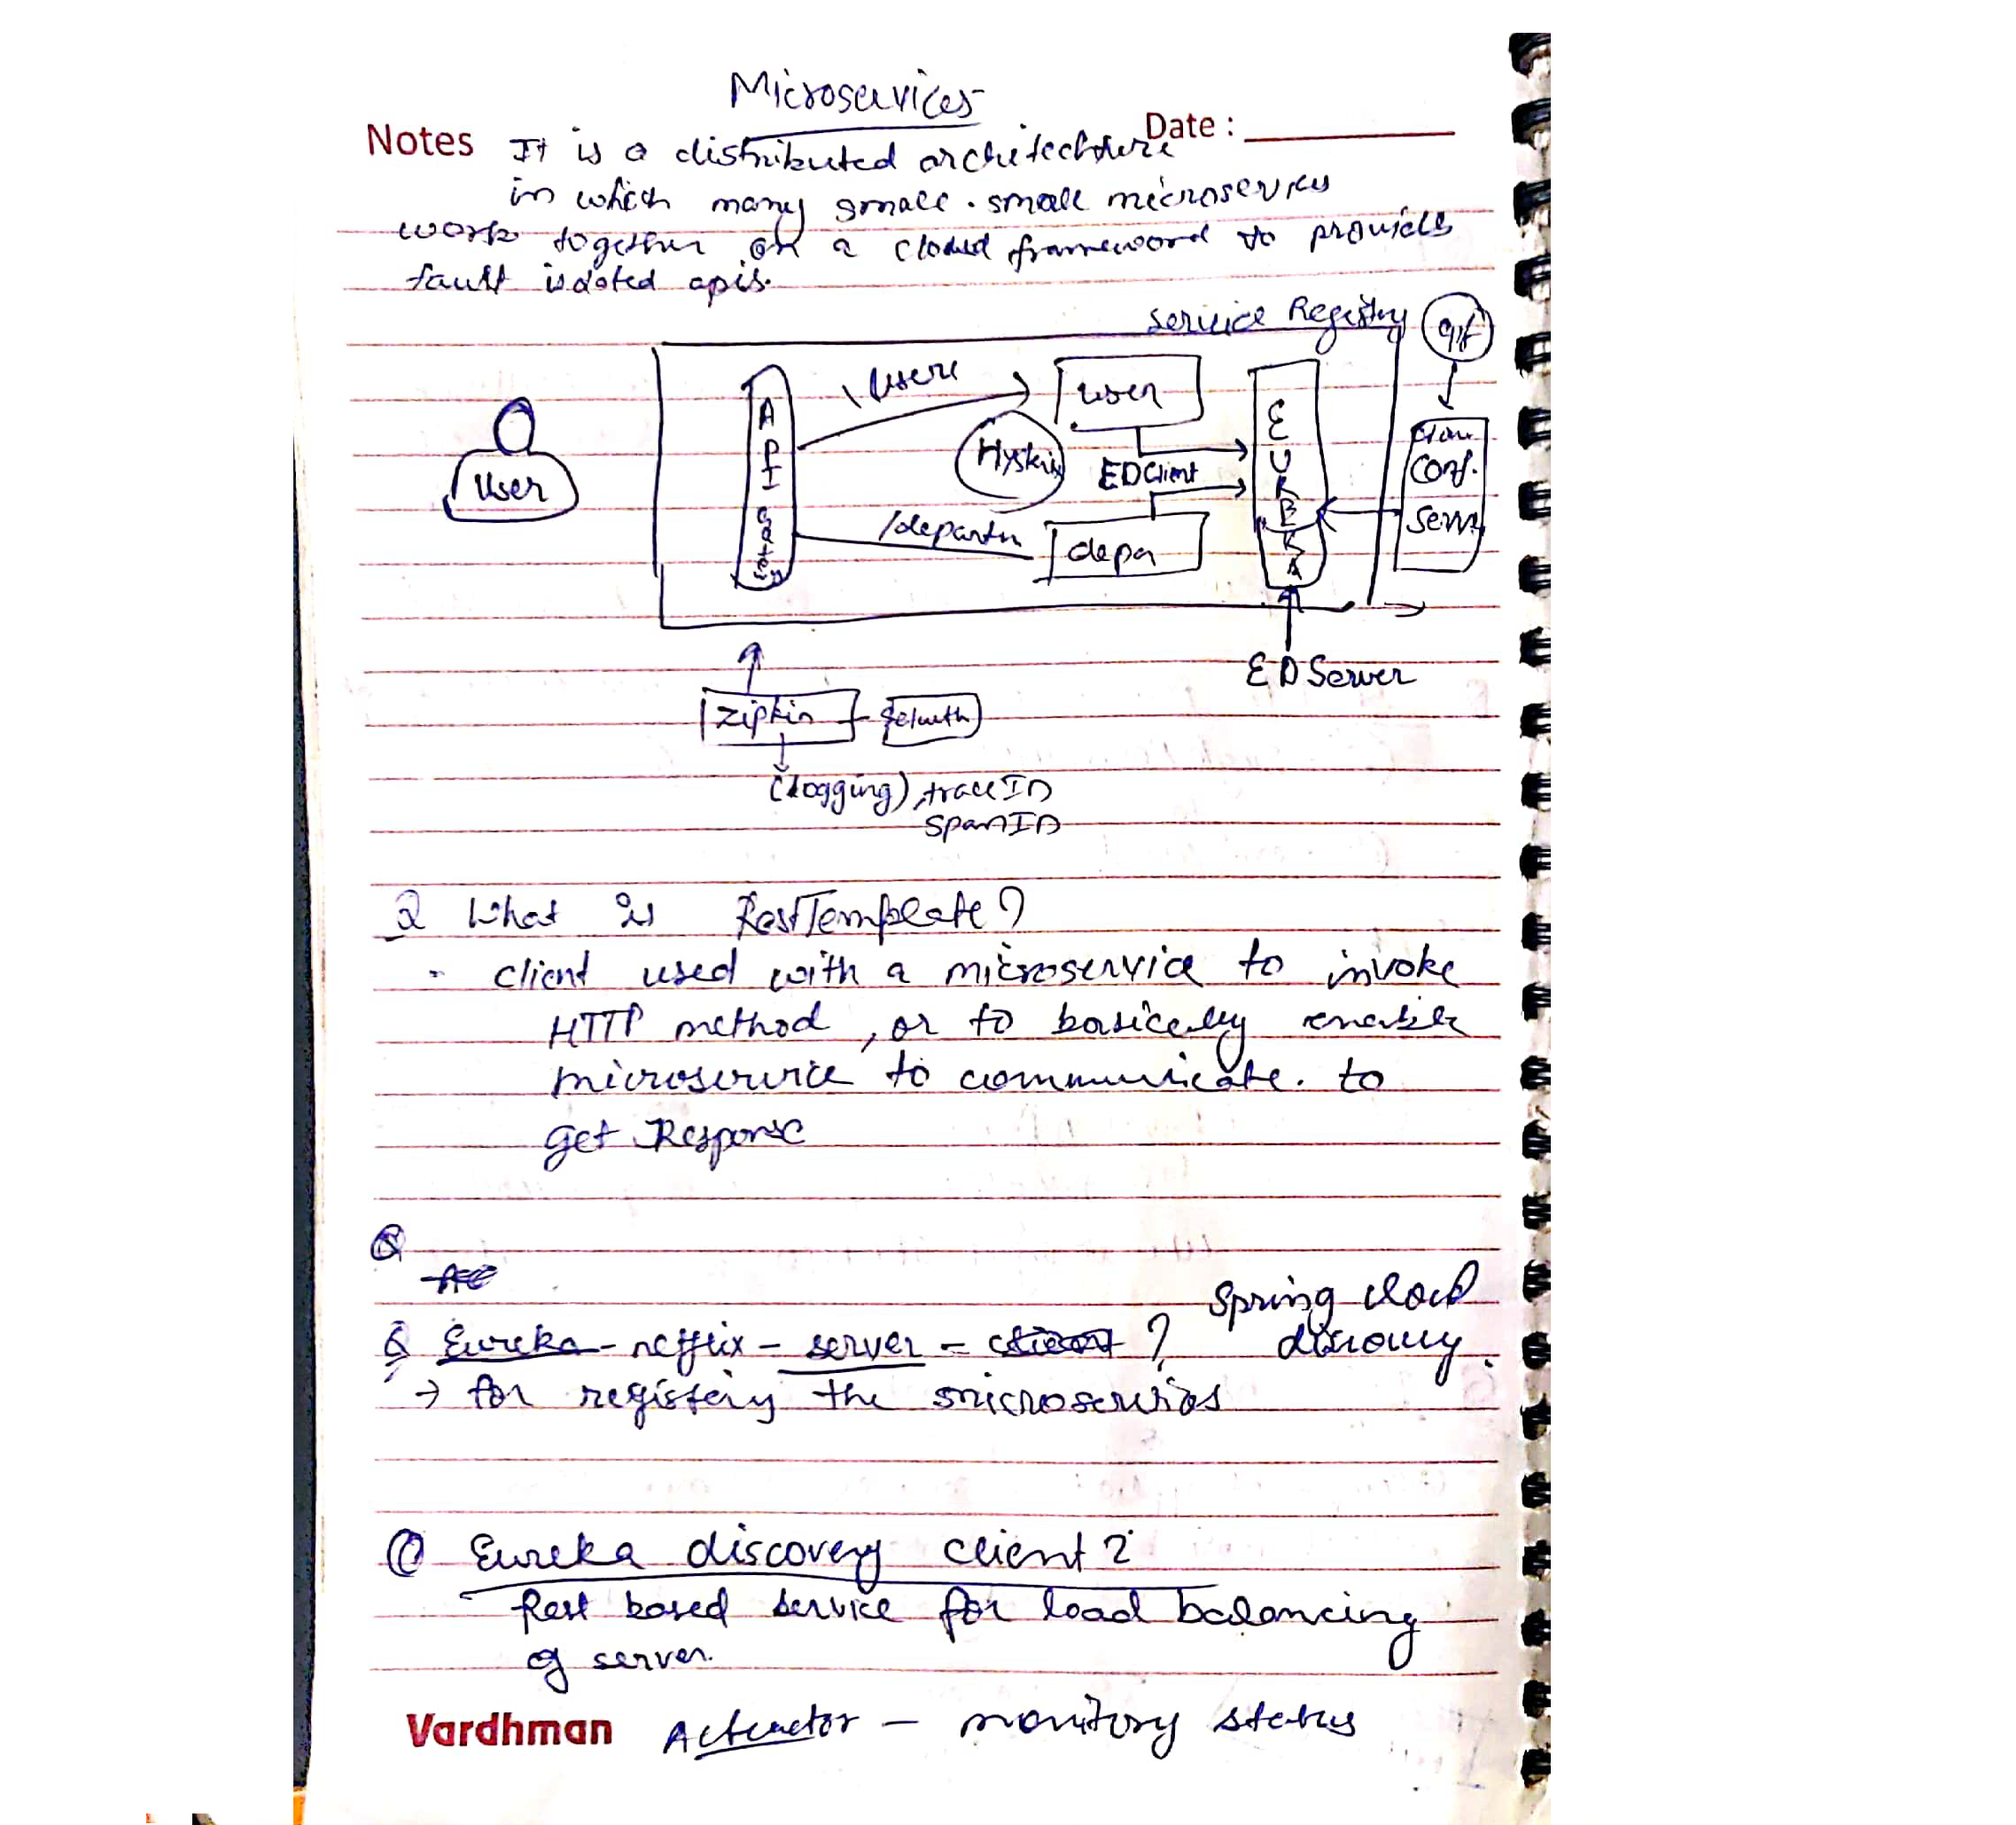 Microservices
Notes
Date :
It is a distributed architechture
in which many small - small microservices
work together on a cloud frameword to provide
fault isolated apis.
Service Registry
git
User
API Gateway
\users
user
Hystrix
ED Client
/departm
depa
EUREKA
Conf.
Serv
ED Server
zipkin
seluth
(logging), trace ID
Span ID
Q What is RestTemplate?
- client used with a microservice to invoke
HTTP method, or to basically enable
microservice to communicate. to
get Response
Q
Spring cloud
Q Eureka - netflix - server - ?
discovery.
→ for registery the microservices
Q Eureka discovery client ?
Rest based service for load balancing
of server.
Vardhman
Actuator - monitory status